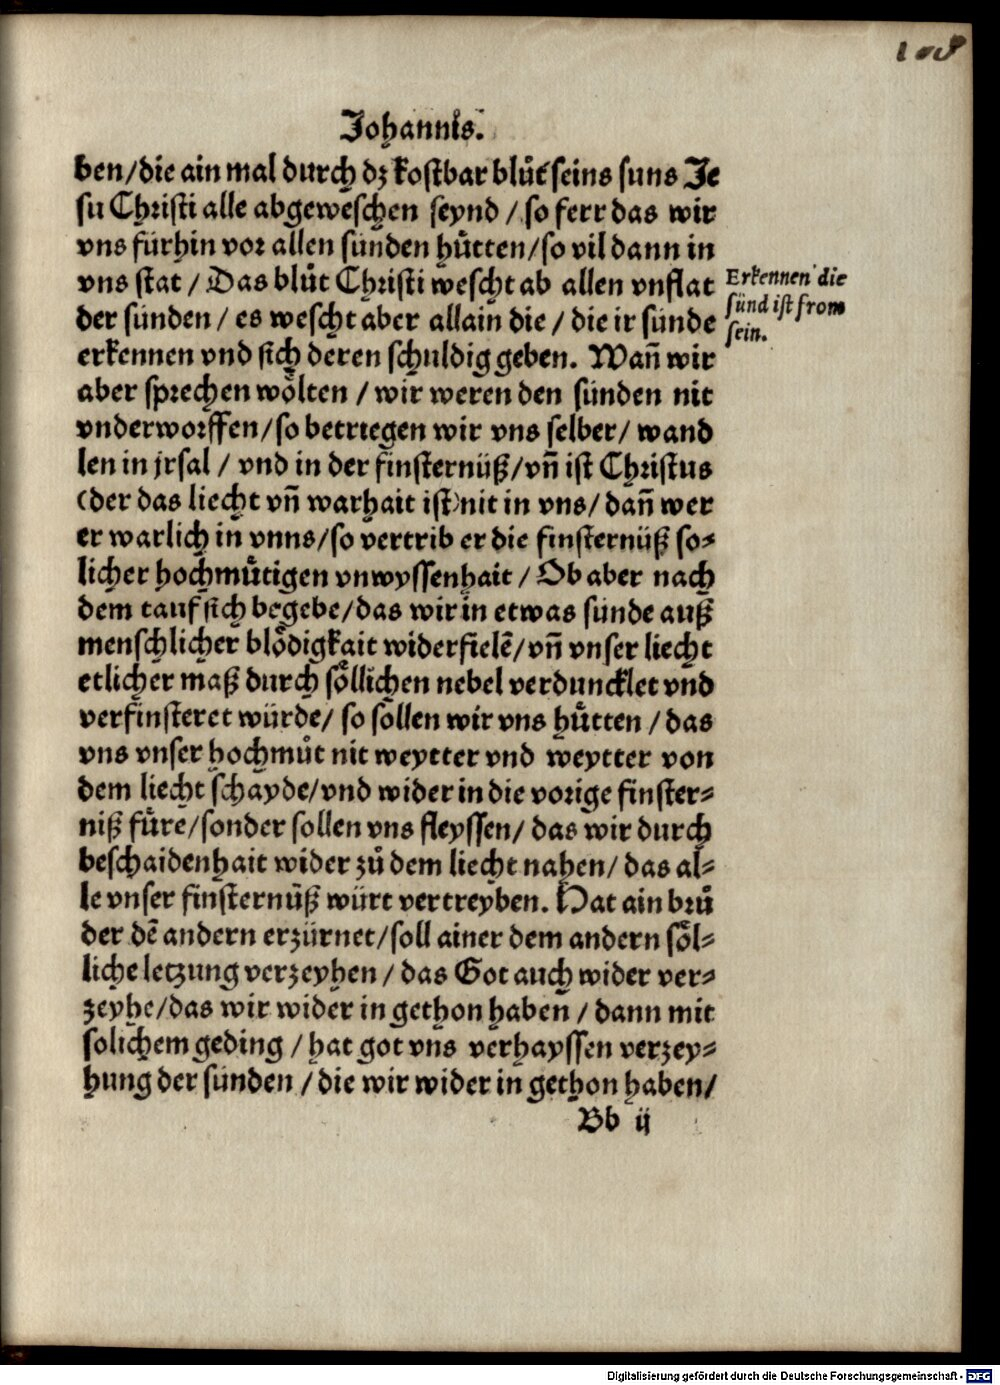 Johannis.
ben/die ain mal durch dz kostbar blůt seins suns Je
su Christi alle abgeweschen seynd / so ferr das wir
vns fürhin vor allen sünden hůtten/so vil dann in
vns stat / Das blůt Christi wescht ab allen vnflat
der sünden / es wescht aber allain die / die ir sünde
erkennen vnd sich deren schuldig geben. Wañ wir
aber sprechen wölten / wir weren den sünden nit
vnderworffen/so betriegen wir vns selber/ wand
len in jrsal / vnd in der finsternüß/vñ ist Christus
(der das liecht vñ warhait ist)nit in vns/ dañ wer
er warlich in vnns/so vertrib er die finsternüß so⸗
licher hochmůtigen vnwyssenhait / Ob aber nach
dem tauf sich begebe/das wir in etwas sünde auß
menschlicher blödigkait widerfielē/vñ vnser liecht
etlicher maß durch söllichen nebel verduncklet vnd
verfinsteret würde/ so sollen wir vns hůtten / das
vns vnser hochmůt nit weytter vnd weytter von
dem liecht schayde/vnd wider in die vorige finster⸗
niß fůre/sonder sollen vns fleyssen/ das wir durch
beschaidenhait wider zů dem liecht nahen/ das al⸗
le vnser finsternüß würt vertreyben. Hat ain brů
der dē andern erzürnet/soll ainer dem andern söl⸗
liche letzung verzeyhen / das Got auch wider ver⸗
zeyhe/das wir wider in gethon haben / dann mit
solichem geding / hat got vns verhayssen verzey⸗
hung der sünden / die wir wider in gethon haben/
Bb ij
Erkennen die
sünd ist from
sein.
Digitalisierung gefördert durch die Deutsche Forschungsgemeinschaft - DFG